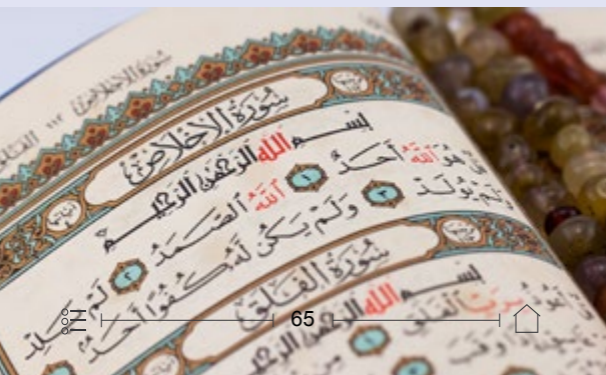 سُورَةُ الإِخْلَاصِ ١١٢
سُورَةُ الإِخْلَاصِ
بِسْمِ اللَّهِ الرَّحْمَٰنِ الرَّحِيمِ
قُلْ هُوَ اللَّهُ أَحَدٌ ١ اللَّهُ الصَّمَدُ ٢ لَمْ يَلِدْ
وَلَمْ يُولَدْ ٣ وَلَمْ يَكُنْ لَهُ كُفُوًا أَحَدٌ
سُورَةُ الفَلَقِ
بِسْمِ اللَّهِ الرَّحْمَٰنِ الرَّحِيمِ
قُلْ أَعُوذُ بِرَبِّ الفَلَقِ ١ مِنْ
65